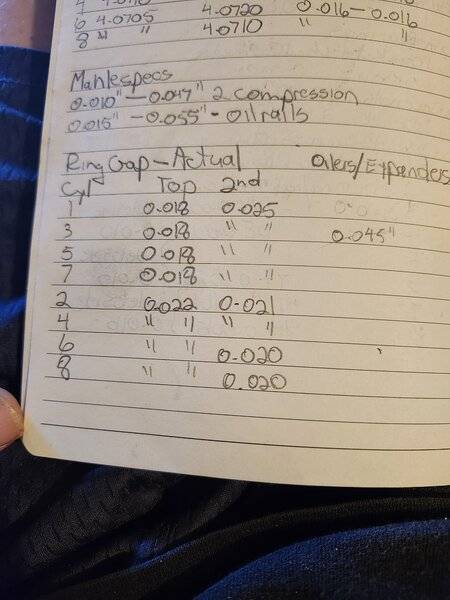 6 4.0705 4.0720 0.016-0.016
8 " " 4.0710 " "
Mahlespecs
0.010" - 0.047" 2 compression
0.015" - 0.055" - Oil rails
Ring Gap - Actual Oilers/Expanders
Cyl Top 2nd
1 0.018 0.025
3 0.018 " " 0.045"
5 0.018 " "
7 0.018 " "
2 0.022 0.021
4 " " " "
6 " " 0.020
8 " " 0.020